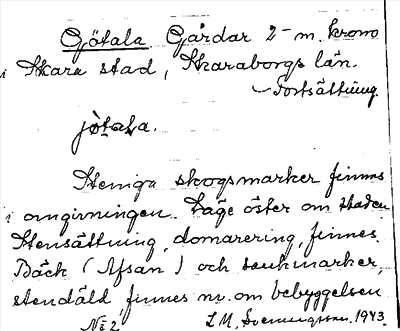 Götala Gårdar 2-m. krono
i Skara stad, Skaraborgs län.
Fortsättning
jötala.
Steniga skogsmarker finnes
i omgivningen. Läge öster om staden
Stensättning, domarering, finnes.
Bäck (Afsan) och sankmarker,
stendåld, finnes nv. om bebyggelsen
No 2. L.M. 1943.